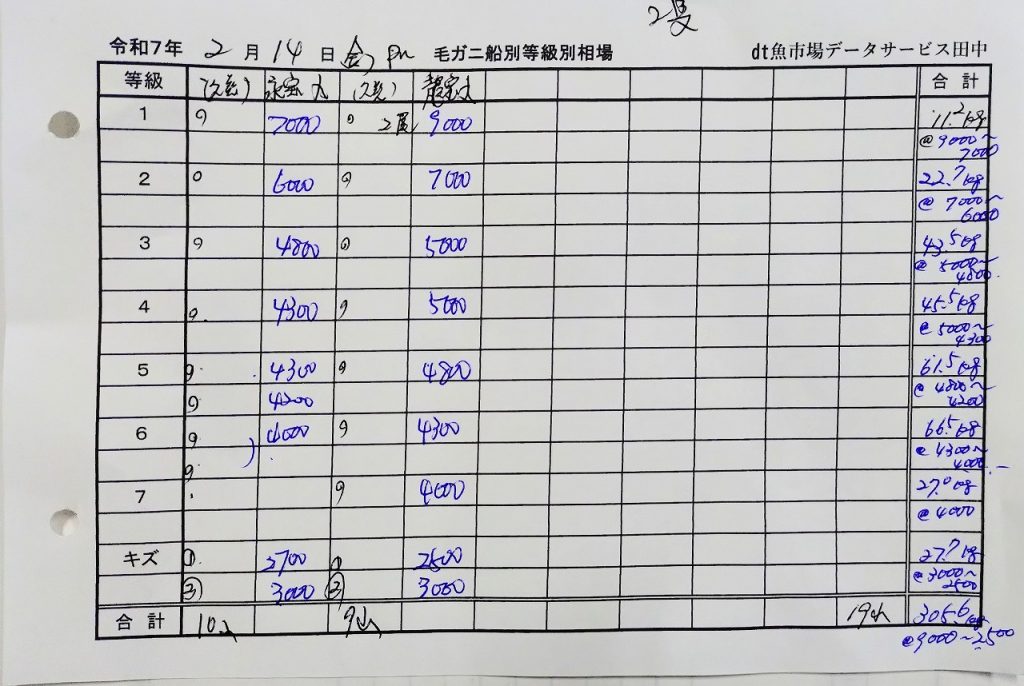 2隻
令和7年 2月14日(金) pm 毛ガニ船別等級別相場 dt魚市場データサービス田中
等級 合計
1 7000 2尾 9000 11.2kg
@9000〜
7000
2 6000 7000 22.7kg
@7000〜
6000
3 4800 5000 43.5kg
@5000〜
4800
4 4300 5000 45.5kg
@5000〜
4300
5 4300 4800 61.5kg
4200 @4800〜
4200
6 4000 4300 66.5kg
@4300〜
4000
7 4000 27.0kg
@4000
キズ ① 2700 ① 2500 27.7kg
② 3000 ② 3000 @3000〜
2500
合計 10入 9入 19入 305.6kg
@9000〜2500